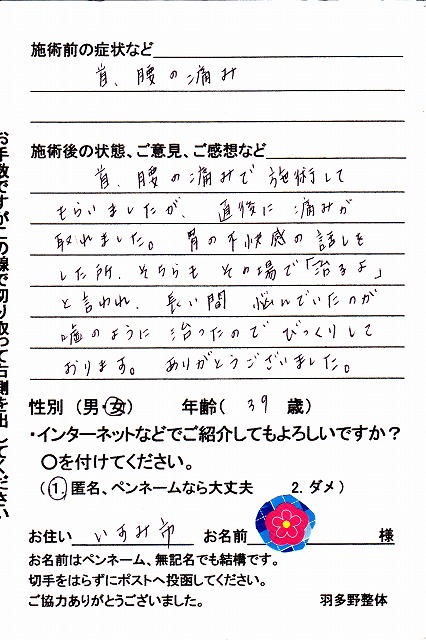 施術前の症状など
首、腰の痛み
施術後の状態、ご意見、ご感想など
首、腰の痛みで 施術して
もらいましたが、直後に 痛みが
取れました。胃の不快感の 話しを
した所、そちらも その場で「治るよ」
と言われ、長い間 悩んでいたのが
嘘のように 治ったので びっくりして
おります。ありがとうございました。
性別（男・女） 年齢（ 39 歳）
・インターネットなどでご紹介してもよろしいですか？
〇を付けてください。
（1. 匿名、ペンネームなら大丈夫 2. ダメ）
お住い いすみ市 お名前 様
お名前はペンネーム、無記名でも結構です。
切手をはらずにポストへ投函してください。
ご協力ありがとうございました。 羽多野整体
お手数ですがこの線で切り取って右側を出してください